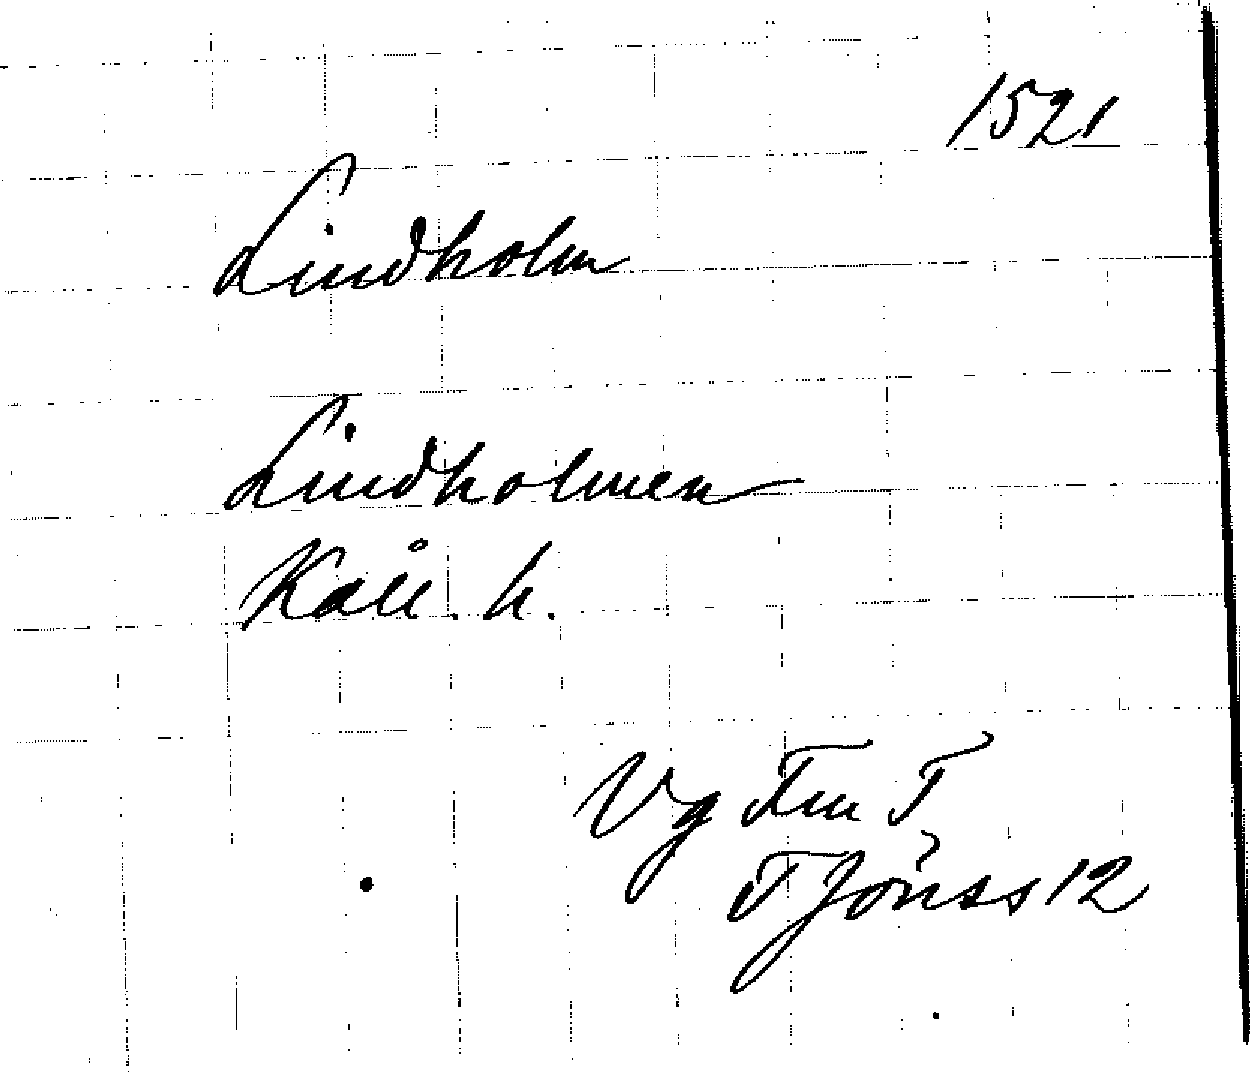 1521
Lindholm
Lindholmen
Kåll. h.
Vg Fm T
T Jönss 12